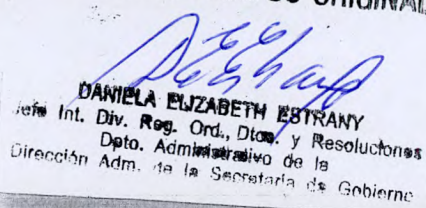 ORIGINAL
DANIELA ELIZABETH ESTRANY
Jefe Int. Div. Reg. Ord., Dtos. y Resoluciones
Dpto. Administrativo de la
Dirección Adm. de la Secretaría de Gobierno